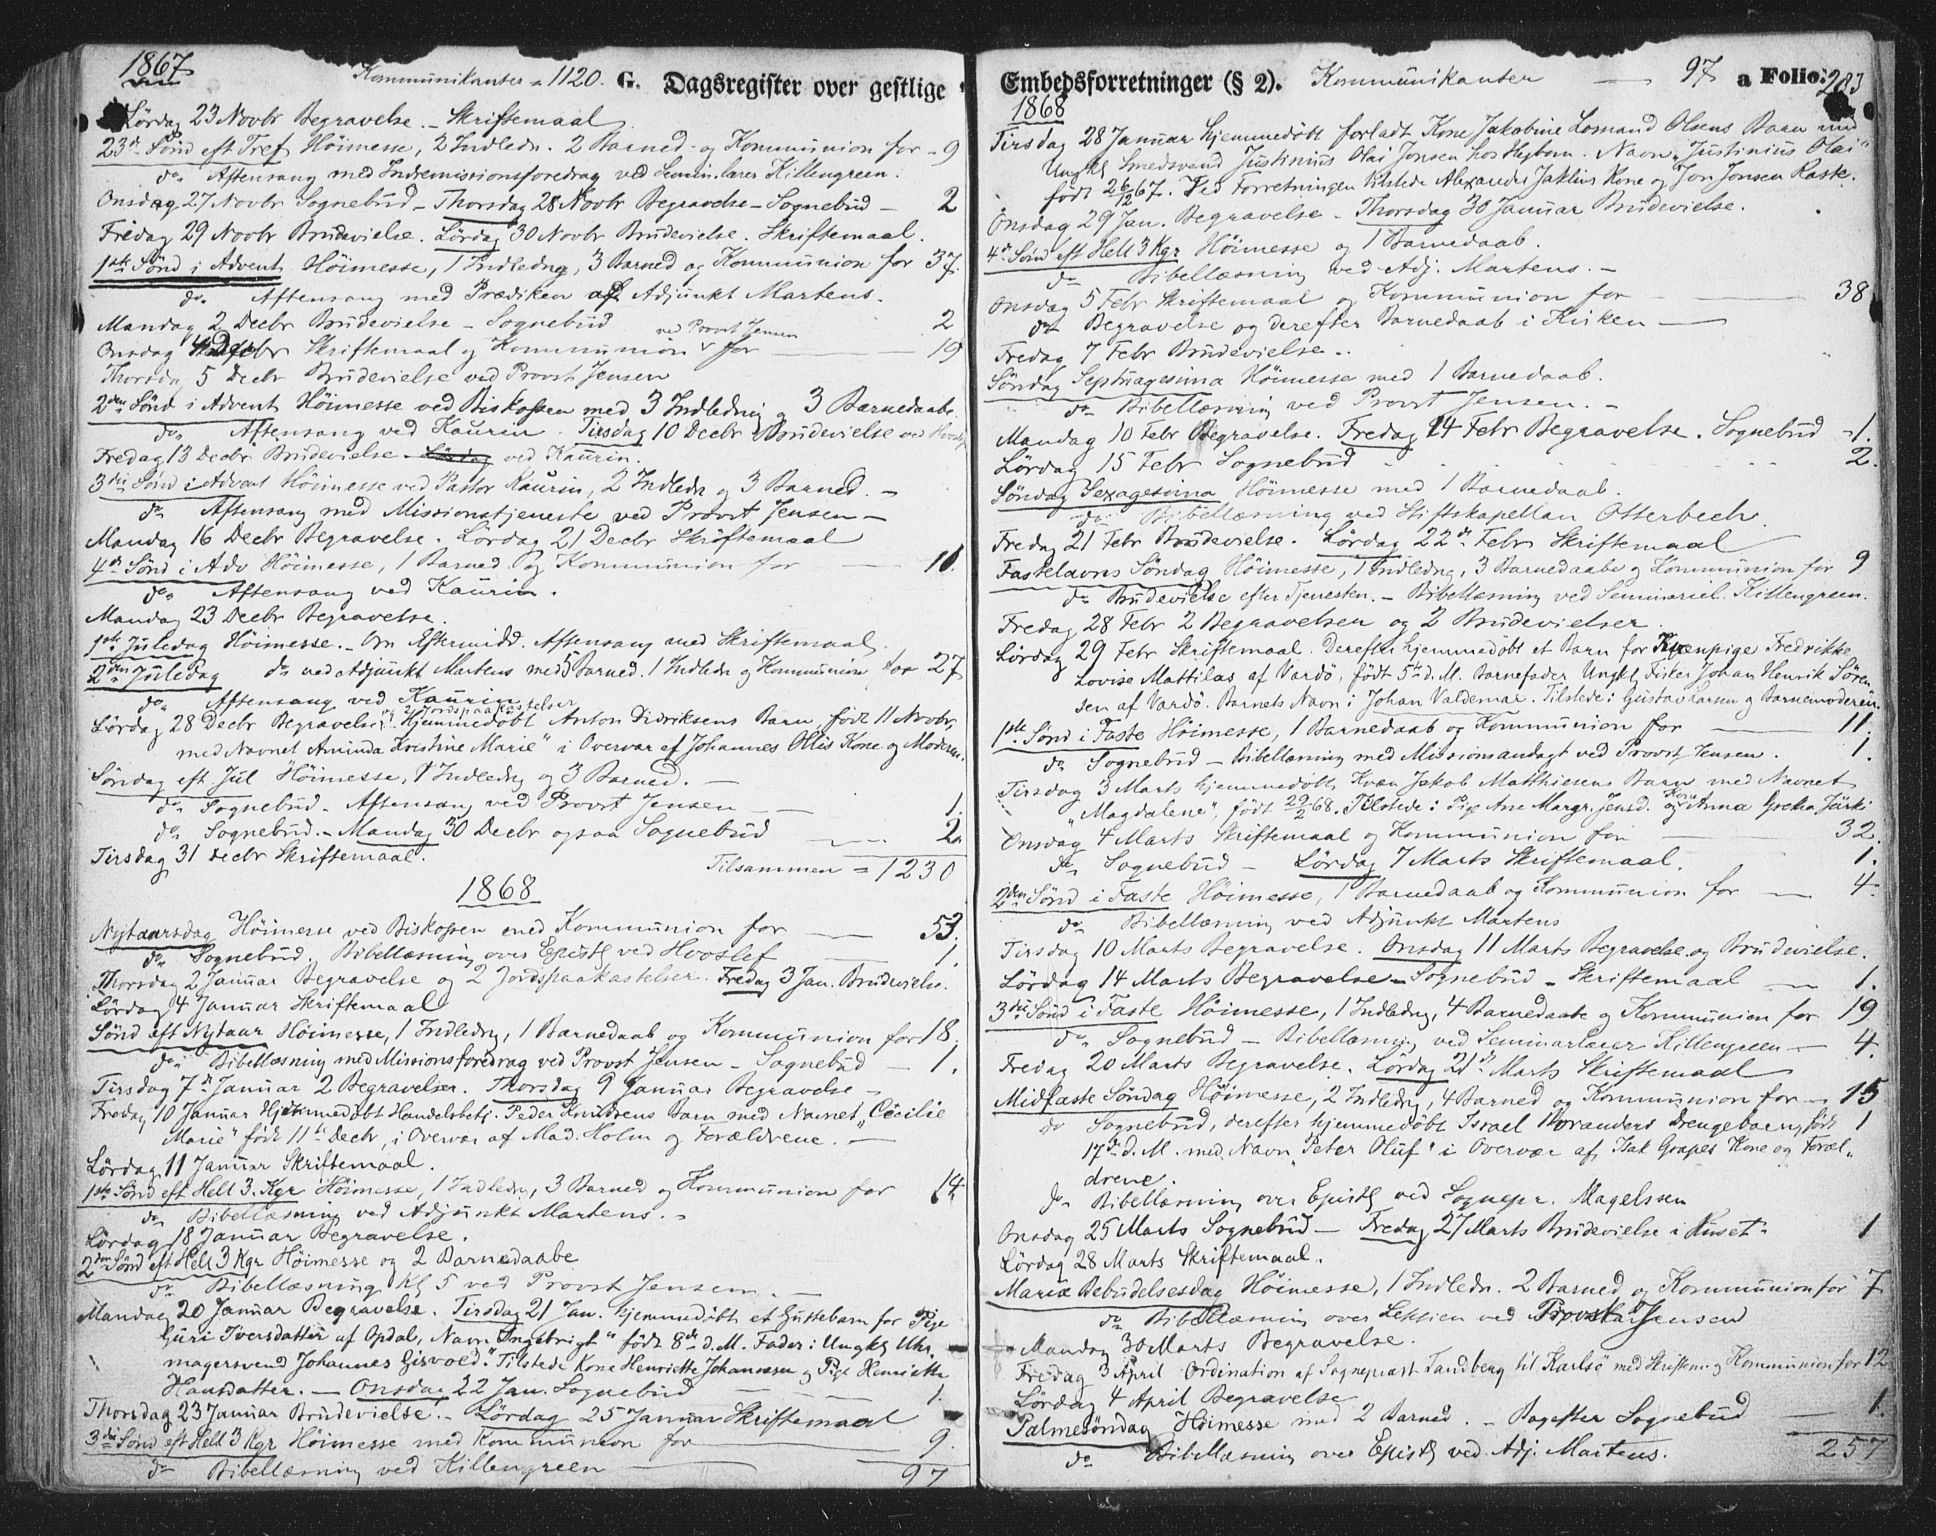 1867
Kommunikanter = 1120. G. Dagsregister over gestlige
Lørdag 23 Novbr Begravelse. - Skriftemaal
23de Sønd eft Tref Høimesse, 2 Indledn. 2 Barned. og Kommunion for - 9
do Aftensang med Indremissionsforedrag ved Semin.lærer Killengreen.
Onsdag 27 Novbr Sognebud - Thorsdag 28 Novbr Begravelse - Sognebud - 2
Fredag 29 Novbr Brudevielse. Lørdag 30 Novbr Brudevielse. Skriftemaal.
1ste Sønd i Advent Høimesse, 1 Indledng, 3 Barned og Kommunion for 37.
do. Aftensang med Prædiken af Adjunkt Martens.
Mandag 2 Decbr Brudevielse - Sognebud 2
Onsdag 4 Decbr Skriftemaal og Kommunion ved Provst Jensen for - 19
Thorsdag 5 Decbr Brudevielse ved Provst Jensen
2den Sønd i Advent Høimesse ved Biskoppen med 3 Indledng og 3 Barnedaabe.
do. Aftensang ved Kaurin. Tirsdag 10 Decbr Brudevielse ved
Fredag 13 Decbr Brudevielse - Lørdag ved Kaurin.
3die Sønd i Advent Høimesse ved Pastor Kaurin, 2 Indledn og 3 Barned. -
do Aftensang med Missionstjeneste ved Provst Jensen -
Mandag 16 Decbr Begravelse. Lørdag 21 Decbr Skriftemaal
4de Sønd i Adv Høimesse, 1 Barned og Kommunion for - 11.
do. Aftensang ved Kaurin.
Mandag 23 Decbr Begravelse.
1ste Juledag Høimesse. - Om Eftermidd. Aftensang med Skriftemaal.
2den Juledag do ved Adjunkt Martens med 5 Barned. 1 Indledn og Kommunion for 27
do. Aftensang ved Kaurin
Lørdag 28 Decbr Begravelse og 2 Jordspaakastelser. Hjemmedøbt Anton Didriksens Barn, født 11 Novbr
med Navnet Aminda Kristine Marie" i Overvær af Johannes Ollis Kone og Moderen.
Søndag eft Jul Høimesse, 1 Indledng og 3 Barned. -
do. Sognebud - Aftensang ved Provst Jensen - 1.
do Sognebud. - Mandag 30 Decbr ogsaa Sognebud - 2.
Tirsdag 31 Decbr Skriftemaal.
Tilsammen = 1230
1868
Nytaarsdag Høimesse ved Biskoppen med Kommunion for - 53.
do. Sognebud. Bibellæsning over Epistl ved Hvoslef 1.
Thorsdag 2 Januar Begravelse og 2 Jordspaakastelser. Fredag 3 Jan. Brudevielse.
Lørdag 4 Januar Skriftemaal
Sønd eft Nytaar Høimesse, 1 Indledng, 1 Barnedaab og Kommunion for 18.
do. Bibellæsning med Missionsforedrag ved Provst Jensen - Sognebud - 1.
Tirsdag 7de Januar 2 Begravelser. Thorsdag 9 Januar Begravelse -
Fredag 10 Januar Hjemmedøbt Handelsbetj. Peder Knudsens Barn med Navnet „Cecilie
Marie" født 11te Decbr, i Overvær af Mad. Holm og Forældrene. -
Lørdag 11 Januar Skriftemaal.
1ste Sønd eft Hell 3. Kgr Høimesse, 1 Indledn, 3 Barned og Kommunion for 14
do. Bibellæsning ved Adjunkt Martens. -
Lørdag 18 Januar Begravelse.
2den Sønd eft Hell 3 Kgr Høimesse og 2 Barnedaabe
do. Bibellæsning Kl 5 ved Provst Jensen. -
Mandag 20 Januar Begravelse. Tirsdag 21 Jan. hjemmedøbt et Guttebarn for Pige
Guri Iversdatter af Opdal, Navn „Ingebrigt" født 8de d. M. Fader: Ungkl Uhr-
magersvend Johannes Gisvold. Tilstede Kone Henriette Johannesen og Pige Henriette
Hansdatter. - Onsdag 22 Jan. Sognebud - 1.
Thorsdag 23 Januar Brudevielse. - Lørdag 25 Januar Skriftemaal
3die Sønd eft Hell 3 Kgr Høimesse med Kommunion for 9.
do Bibellæsning ved Killengreen - 97
Embedsforretninger (§ 2). Kommunikanter - 97 a Folio. 283
1868
Tirsdag 28 Januar hjemmedøbt forladt Kone Jakobine Lomand Olsens Barn med
Ungkl Smedsvend Justinius Olai Jonsen hos Heyborn. Navn „Justinius Olai"
født 26/12 67. Ved Forretningen tilstede Alexander Jaklins Kone og Jon Jonsen Raste.
Onsdag 29 Jan. Begravelse - Thorsdag 30 Januar Brudevielse.
4de Sønd eft Hell 3 Kgr Høimesse og 1 Barnedaab.
do Bibellæsning ved Adj. Martens. -
Onsdag 5 Febr Skriftemaal og Kommunion for - 38
do Begravelse og derefter Barnedaab i Kirken -
Fredag 7 Febr Brudevielse.
Søndag Septuagesima Høimesse med 1 Barnedaab.
do Bibellæsning ved Provst Jensen. -
Mandag 10 Febr Begravelse. Fredag 14 Febr Begravelse. Sognebud - 1.
Lørdag 15 Febr Sognebud 2.
Søndag Sexagesima Høimesse med 1 Barnedaab.
do Bibellæsning ved Stiftskapellan Otterbech
Fredag 21 Febr Brudevielse. Lørdag 22de Febr Skriftemaal
Fastelavns Søndag Høimesse, 1 Indledng, 3 Barnedaabe og Kommunion for 9
do Brudevielse efter Tjenesten. - Bibellæsning ved Seminariel. Killengreen.
Fredag 28 Febr 2 Begravelser og 2 Brudevielser.
Lørdag 29 Febr Skriftemaal. Derefter hjemmedøbt et Barn for Kvænpige Fredrikke
Lovise Mattilas af Vardø, født 5te d. M. Barnefader Ungkl. Fisker Johan Henrik Søren
sen af Vardø. Barnets Navn: Johan Valdemar. Tilstede: Gustav Larsen og Barnemoderen.
1ste Sønd i Faste Høimesse, 1 Barnedaab og Kommunion for - 11.
do. Sognebud - Bibellæsning med Missionsandagt ved Provst Jensen. 1.
Tirsdag 3 Marts hjemmedøbt Kvæn Jakob Matthiesens Barn med Navnet
„Magdalene", født 29/2 68. Tilstede: Pige Ane Margr. Jensd. og Kone Anna Greta Jürki
Onsdag 4 Marts Skriftemaal og Kommunion for 32.
do Sognebud - Lørdag 7 Marts Skriftemaal. 1.
2den Sønd i Faste Høimesse, 1 Barnedaab og Kommunion for - 4.
do Bibellæsning ved Adjunkt Martens
Tirsdag 10 Marts Begravelse. Onsdag 11 Marts Begravelse og Brudevielse.
Lørdag 14 Marts Begravelse - Sognebud - Skriftemaal - 1.
3die Sønd i Faste Høimesse, 1 Indledng, 4 Barnedaabe og Kommunion for 19
do. Sognebud - Bibellæsning ved Seminarlærer Killengreen - 4.
Fredag 20 Marts Begravelse. Lørdag 21de Marts Skriftemaal
Midfaste Søndag Høimesse, 2 Indledng, 4 Barned og Kommunion for - 15
do Sognebud, derefter hjemmedøbt Israel Moranders Drengebarn, født 1
17de d. M. med Navn „Peter Oluf" i Overvær af Isak Grapes Kone og Foræl-
drene.
do Bibellæsning over Epistl ved Sognepr. Magelssen
Onsdag 25 Marts Sognebud - Fredag 27 Marts Brudevielse i Huset. 1
Lørdag 28 Marts Skriftemaal.
Mariæ Bebudelsesdag Høimesse, 1 Indledn. 2 Barned og Kommunion for 7
do Bibellæsning over Lektien ved Provst Jensen
Mandag 30 Marts Begravelse.
Fredag 3 April Ordination af Sognepræst Tandberg til Karlsø med Skriftem. og Kommunion for 12
Lørdag 4 April Begravelse
Palmesøndag Høimesse med 2 Barned. - Bagefter Sognebud - 1.
do Bibellæsning over Epistl ved Adj. Martens. 257